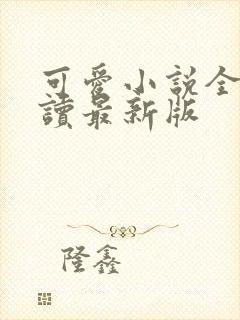 可愛小說全
讀最新版
隆鑫